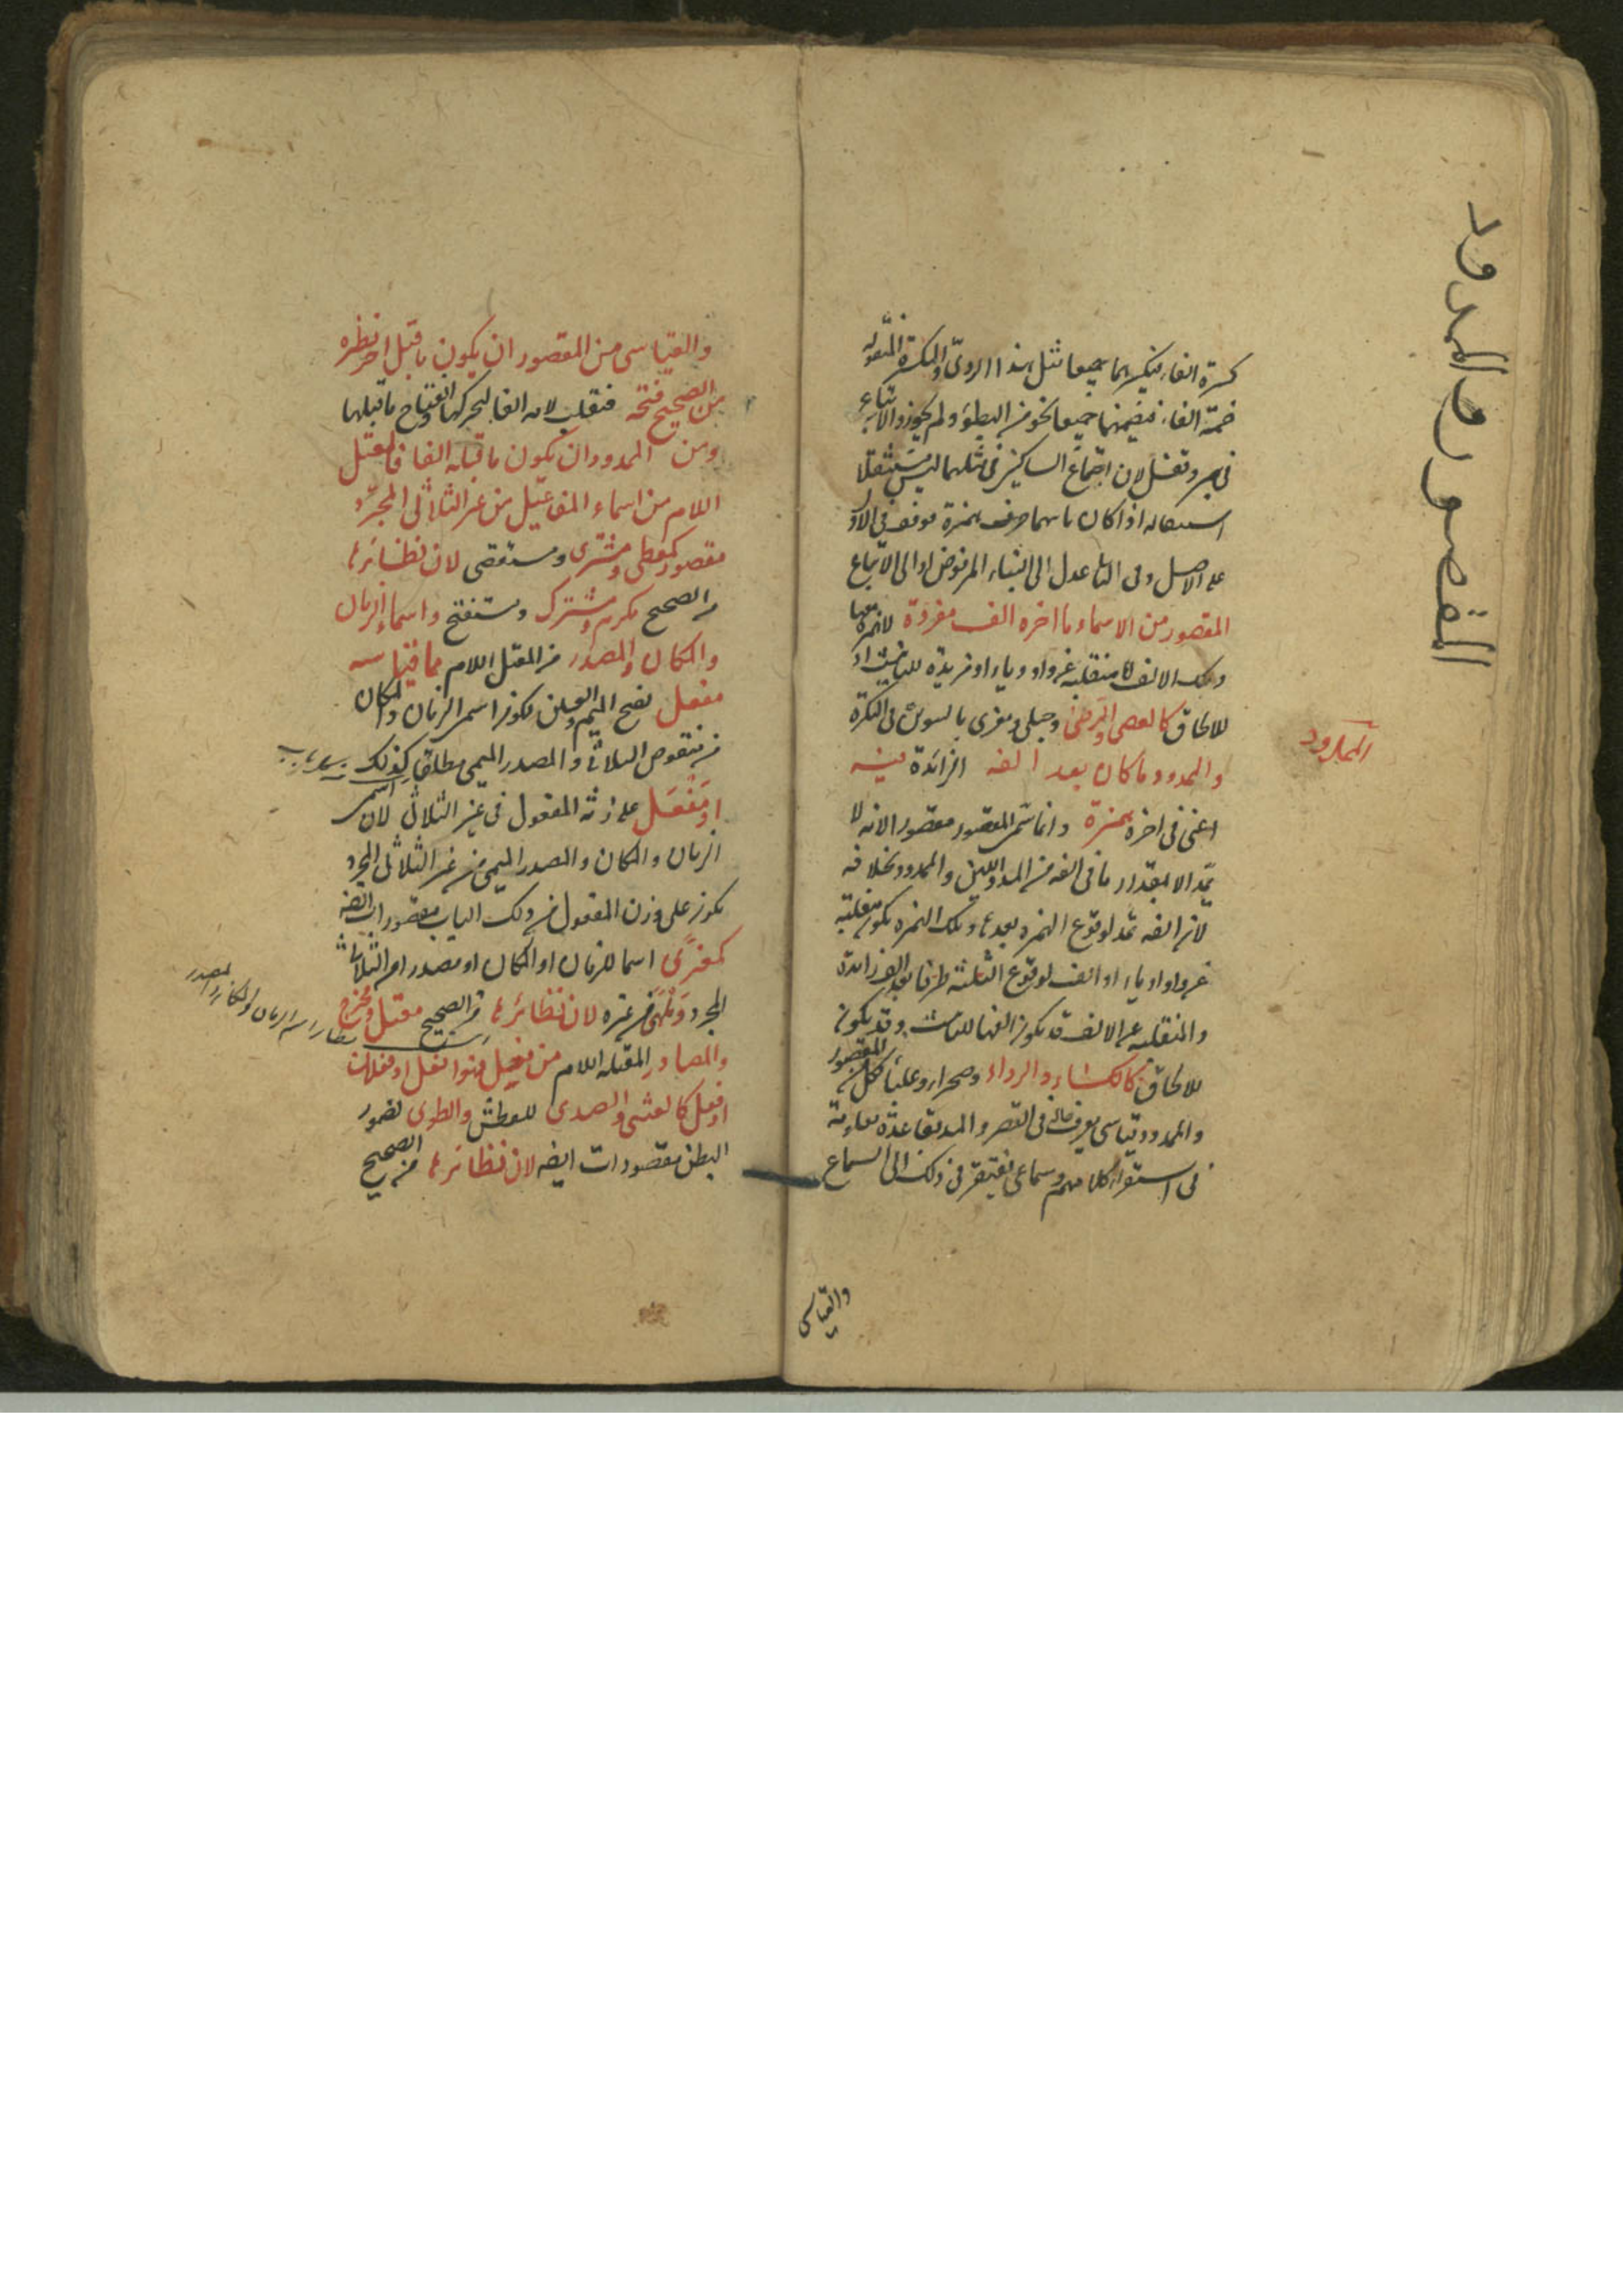 المقصور والممدود
كسرة الفاء فيكسرهما جميعا مثل هذا الردئ والكسرة المنقوله
ضمة الفاء فيضمهما جميعا نحو من البطؤ ولم يجوزوا الاتباع
فى لان اجتماع الساكنين فى مثلهما ليس مستثقلا
اذا كان ما همزة موقوف فى الاول
على الاصل وفى الثانى عدل الى البناء المرفوض او الى الاتباع
المقصور من الاسماء ما اخره الف مفردة لا همزة معها
وتلك الالف اما منقلبة عن واو او ياء او مزيدة للتانيث او
للالحاق كالعصى والرحى وحبلى ومعزى بالتنوين فى النكرة
الممدود
والممدود ما كان بعد الفه الزائدة فيه
اعنى فى اخره همزة وانما سمى المقصور مقصورا لانه لا
يمد الا بمقدار ما فى الفه من المد واللين والممدود بخلافه
لان الفه تمد لوقوع الهمزة بعدها وتلك الهمزة تكون منقلبة
عن واو او ياء او الف لوقوع الثلثة طرفا بعد الف زائدة
والمنقلبة عن الالف قد يكون الفها للتانيث وقد يكون
للالحاق كالكساء والرداء وصحراء وعلباء وكل من المقصور
والممدود قياسى يعرف حاله فى القصر والمد بقاعدة معلومة
فى استقراء كلامهم وسماعى يفتقر فى ذلك الى السماع
والقياسى
والقياسى من المقصور ان يكون ما قبل اخر نظيره
من الصحيح فتحة فتقلب لامه الفا لتحركها وانفتاح ما قبلها
ومن الممدود ان يكون ما قبله الفا فالمعتل
اللام من اسماء المفاعيل من غير الثلاثى المجرد
مقصور كمعطى ومشترى ومستقصى لان نظائرها
من الصحيح مكرم ومشترك ومستفتح واسماء الزمان
والمكان والمصدر من المعتل اللام مما قياسه
مفعل بفتح الميم والعين لكون اسم الزمان والمكان
من منقوص الثلاثى والمصدر الميمى مطلقا كذلك
او مفعل على زنة المفعول فى غير الثلاثى لان اسمى
الزمان والمكان والمصدر الميمى من غير الثلاثى المجرد
يكون على وزن المفعول من ذلك الباب مقصورات ايضا
كمغزى اسما للزمان او المكان او مصدرا من الثلاثى
المجرد وملهى من غيره لان نظائرها من الصحيح مقتل ومخرج
اسم الزمان والمكان والمصدر
والمصادر المعتلة اللام من فعل فهو افعل او فعلان
او فعل كالعشى والصدى للعطش والطوى لضمور
البطن مقصورات ايضا لان نظائرها من الصحيح